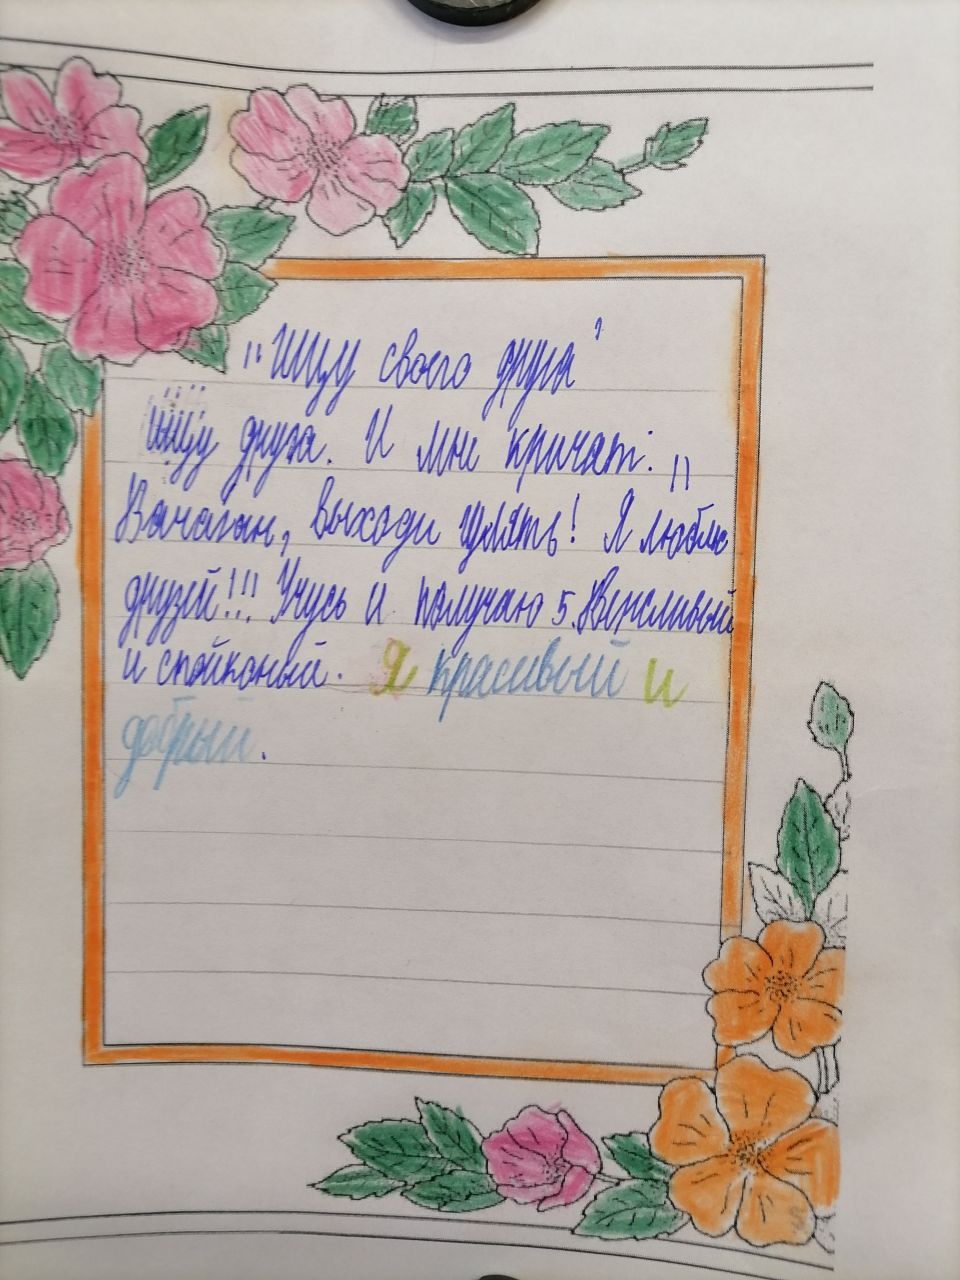 „Ищу своего друга"
Ищу друга. И мне кричат. „
Вачаган, выходи гулять! Я люблю
друзей!!! Учусь и получаю 5. Я вежливый
и спойконый. Я красивый и
добрый.